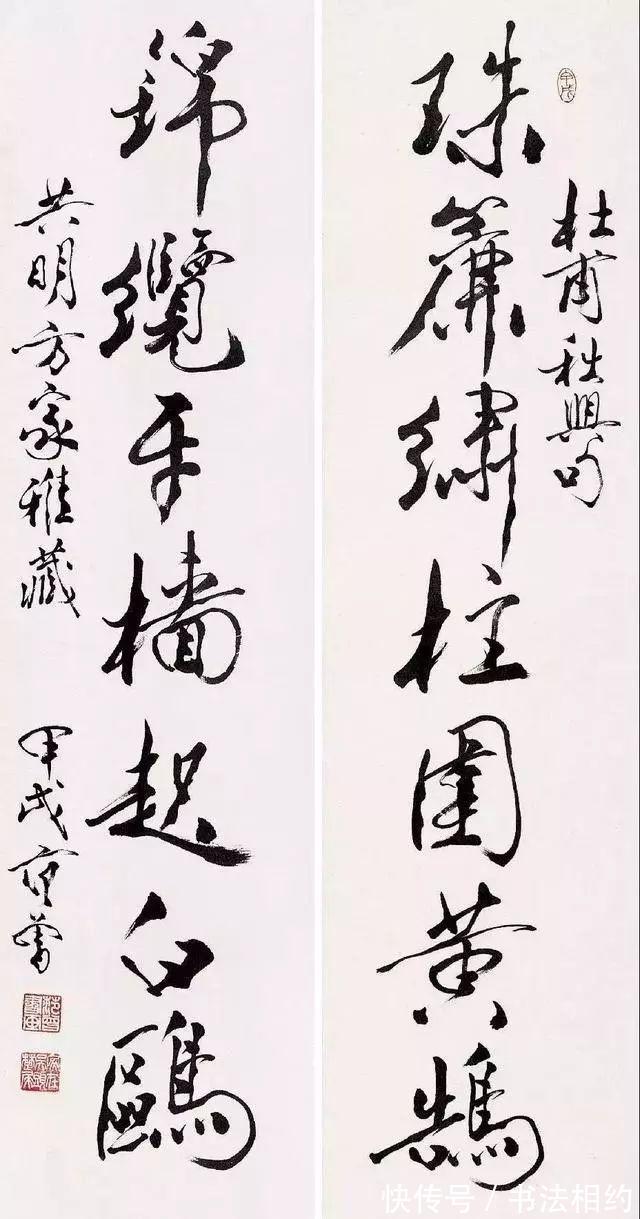 甲戌
杜甫秋興句
珠簾繡柱圍黃鵠
錦纜牙檣起白鷗
共明方家雅藏
甲戌范曾
快传号/书法相约